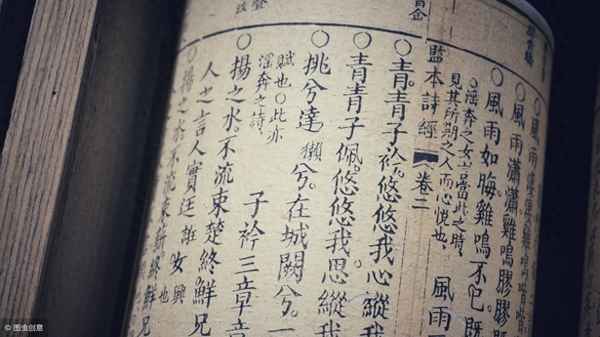 風雨
○風雨瀟瀟雞鳴膠膠
○風雨如晦雞鳴不已。既
○淫奔之女言當此之時
見其所期之人而心悅也。
風雨
監本詩經 卷二
○青青子衿。悠悠我心縱我
○青青子佩。悠悠我思縱我
○挑兮達獺兮。在城闕兮。一
賦也○此亦
淫奔之詩
子衿三章章
○揚之水。不流束楚終鮮兄
人之言人實廷誑女
興也
揚之水不流束薪終鮮兄
© 图虫创意